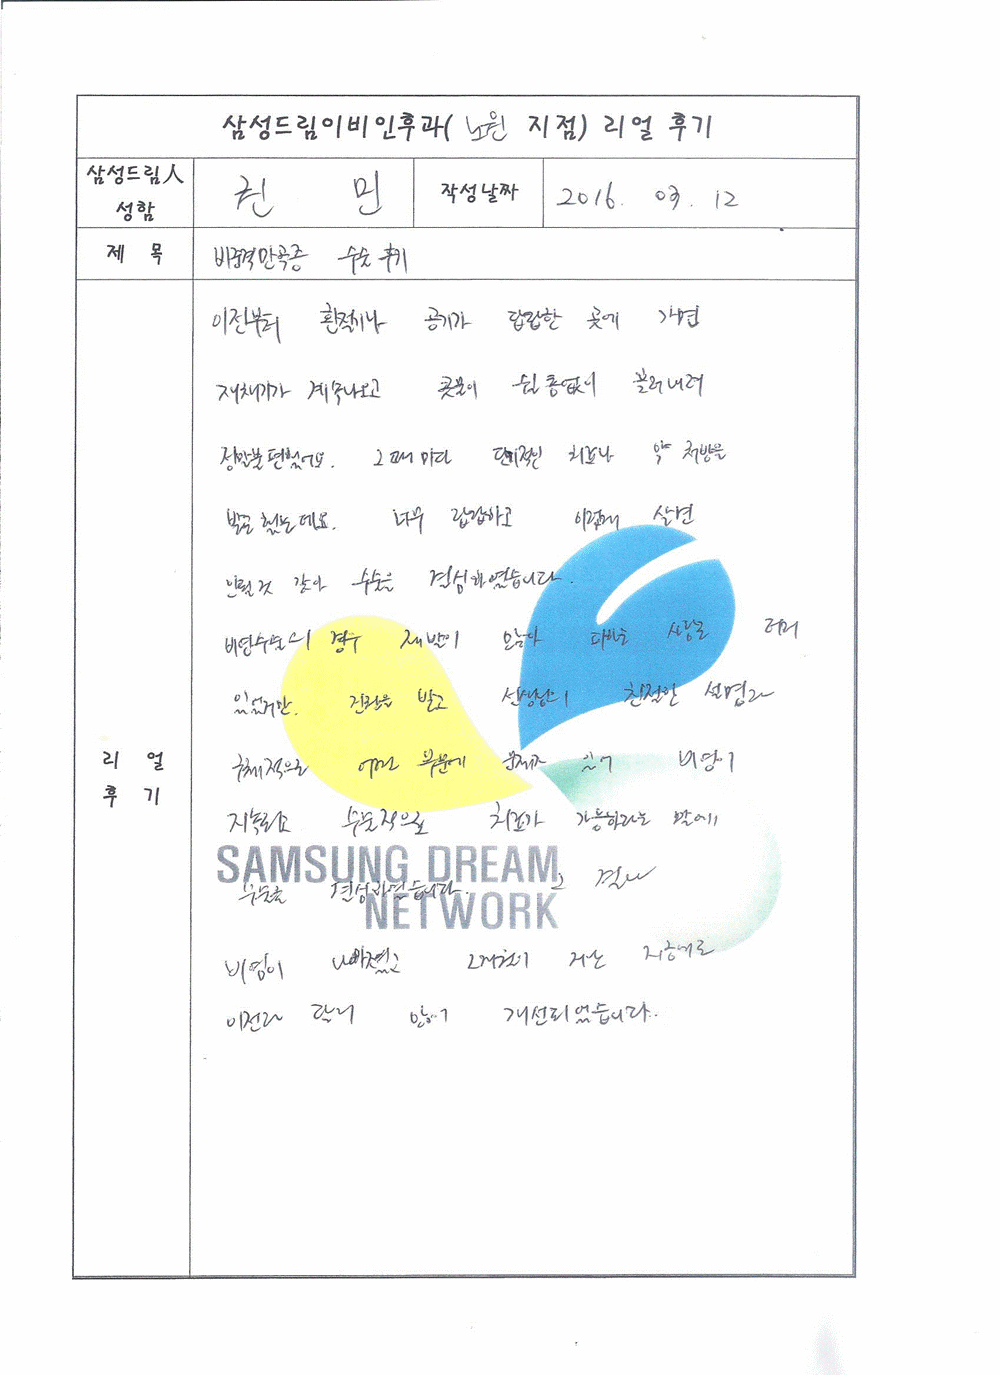 삼성드림이비인후과( 노원 지점) 리얼 후기
삼성드림人 성함
권 민
작성날짜
2016. 03. 12
제 목
비중격만곡증 수술 후기
리 얼 후 기
이전부터 환절기나 공기가 답답한 곳에 가면
재채기가 계속나오고 콧물이 쉴틈없이 흘러내려
정말불편했어요. 그때마다 단기적인 치료나 약 처방을
받곤 했는데요. 너무 답답하고 이렇게 살면
안될것 같아 수술을 결심하였습니다.
비염수술의 경우 재발이 많다 하는 사람도
있었지만. 진찰을 받고 선생님의 친절한 설명과
구체적으로 어떤 부분에 문제가 있어 비염이
지속되고 수술적으로 치료가 가능하다는 말에
수술을 결심하였습니다. 그 결과
SAMSUNG DREAM
NETWORK
비염이 2개월이 지난 지금에도
이전과 달리 많이 개선되었습니다.